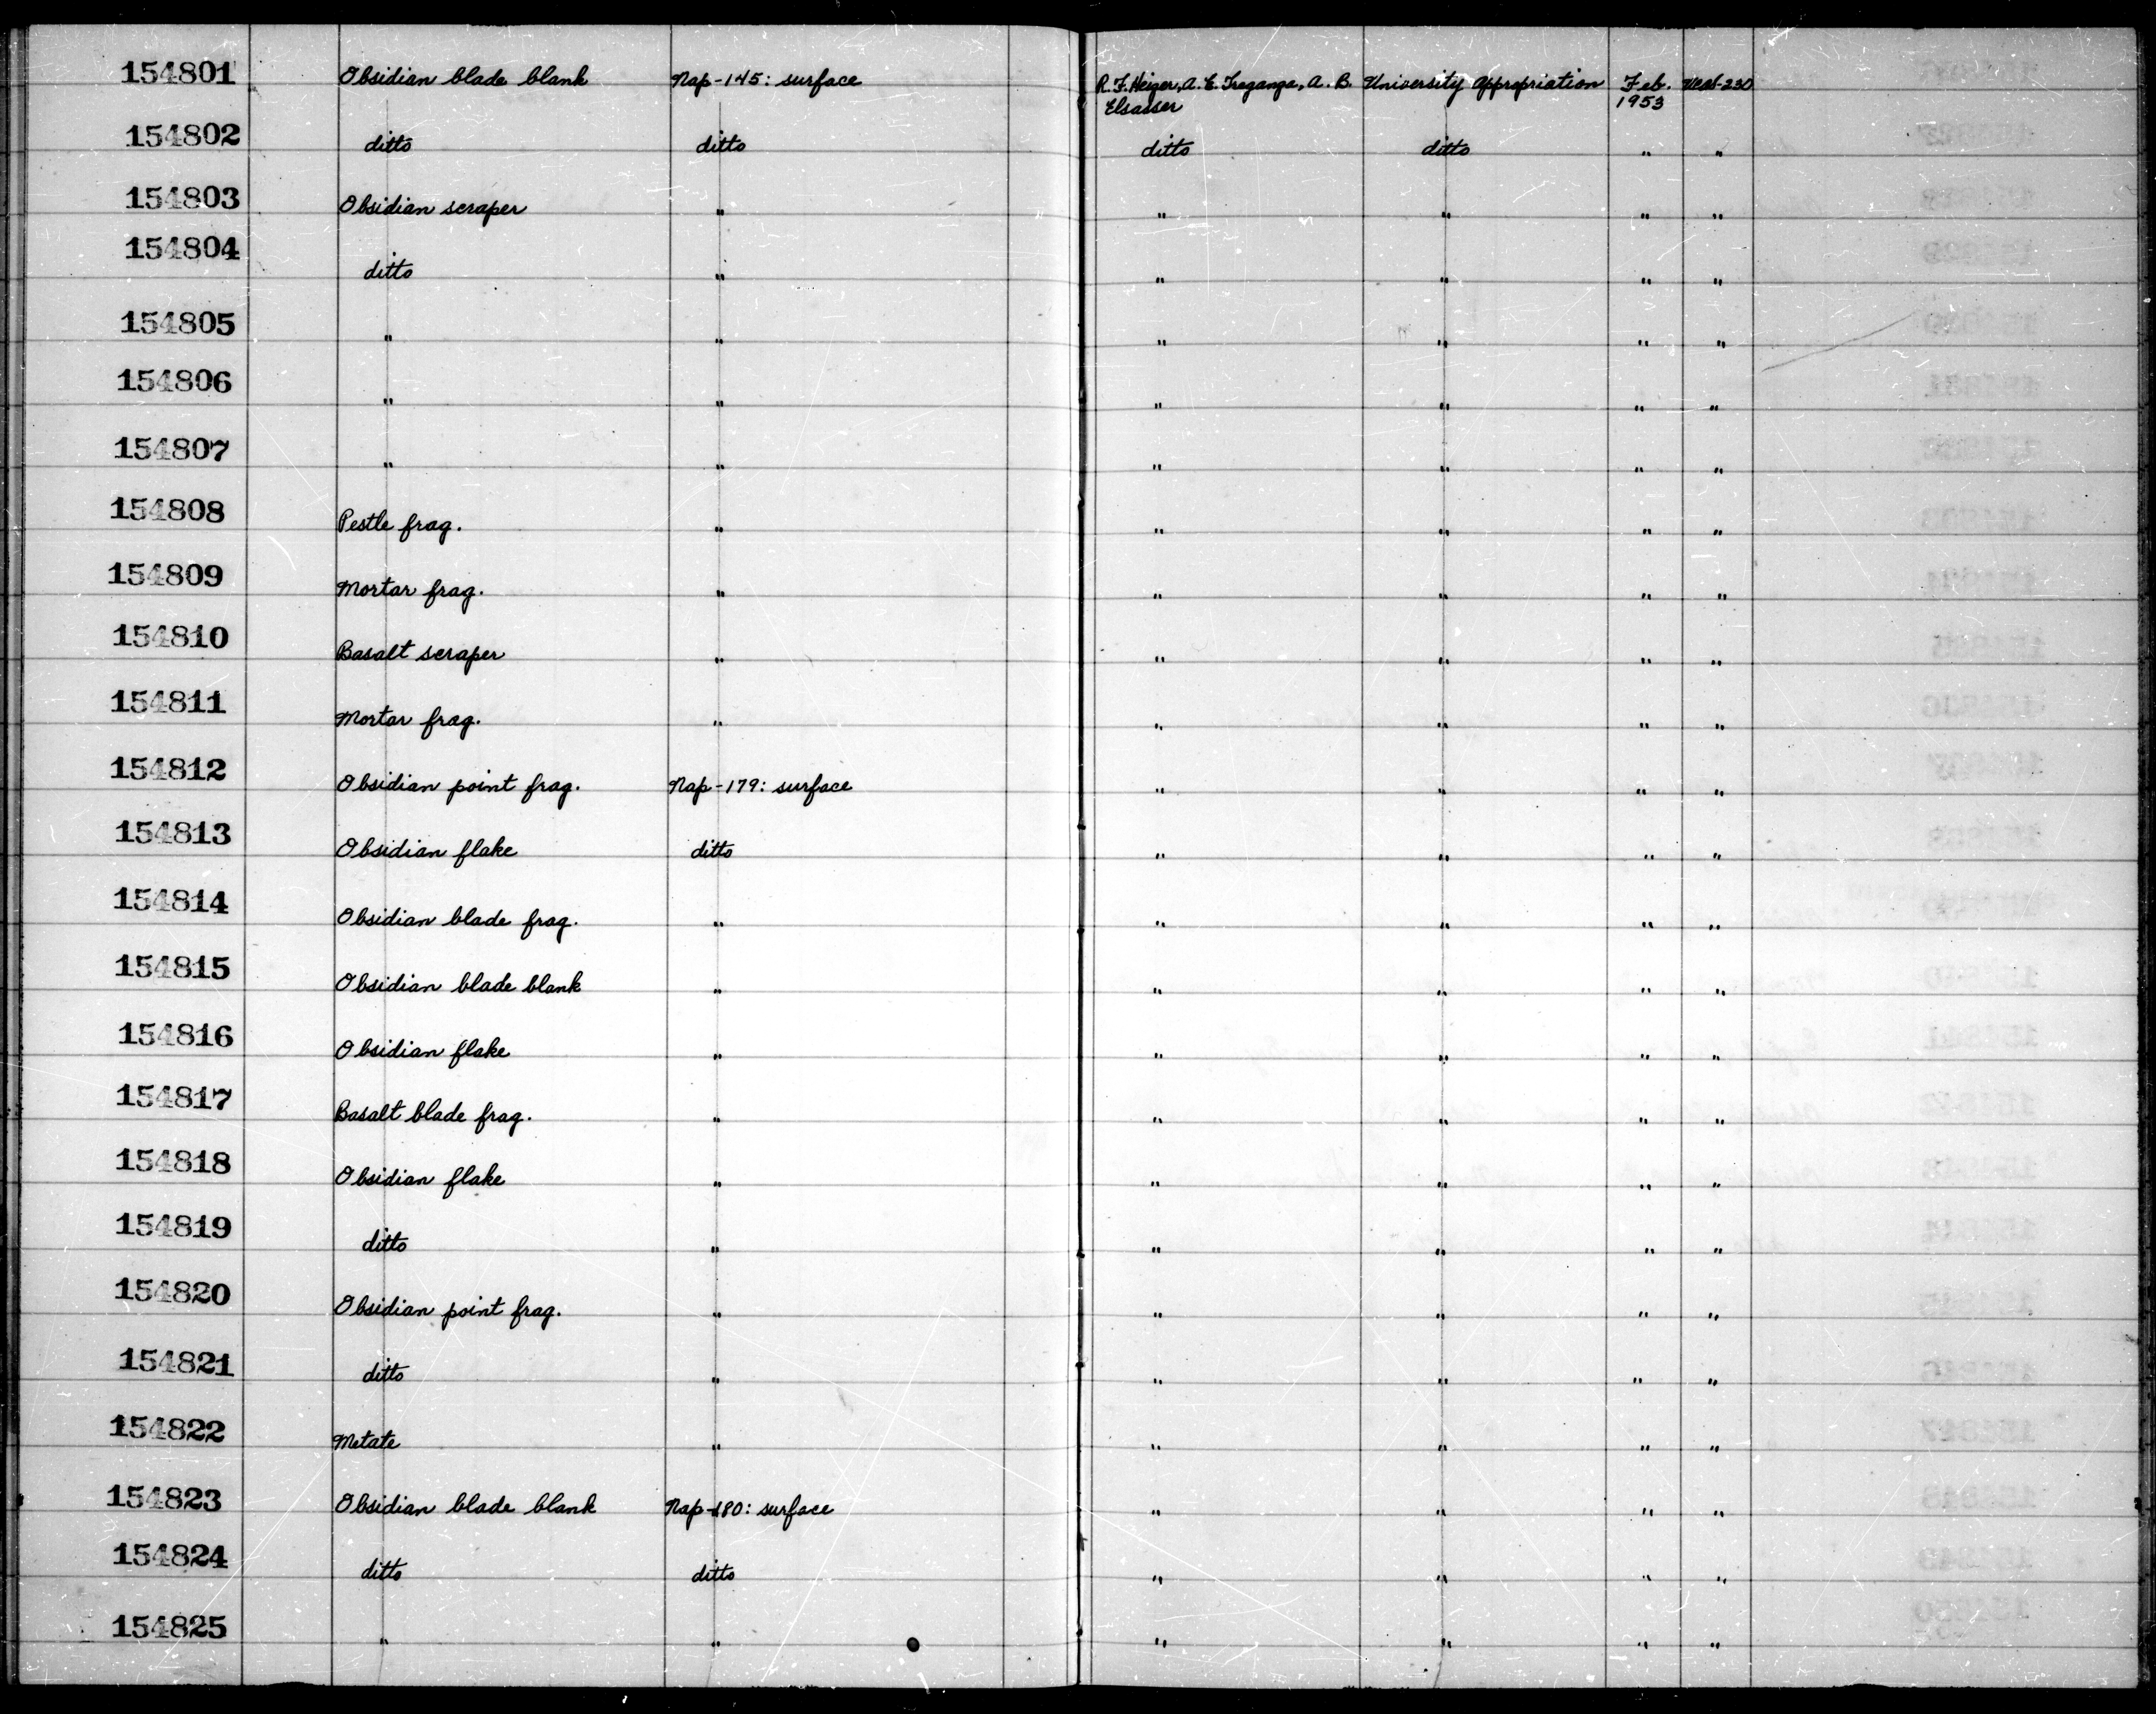 154801 Obsidian blade blank Nap-145: surface R. F. Heizer, A. E. Treganza, A. B. Elsasser University Appropriation Feb. 1953 UCAS-230
154802 ditto ditto ditto ditto " "
154803 Obsidian scraper " " " " "
154804 ditto " " " " "
154805 " " " " " "
154806 " " " " " "
154807 " " " " " "
154808 Pestle frag. " " " " "
154809 Mortar frag. " " " " "
154810 Basalt scraper " " " " "
154811 Mortar frag. " " " " "
154812 Obsidian point frag. Nap-179: surface " " " "
154813 Obsidian flake ditto " " " "
154814 Obsidian blade frag. " " " " "
154815 Obsidian blade blank " " " " "
154816 Obsidian flake " " " " "
154817 Basalt blade frag. " " " " "
154818 Obsidian flake " " " " "
154819 ditto " " " " "
154820 Obsidian point frag. " " " " "
154821 ditto " " " " "
154822 Metate " " " " "
154823 Obsidian blade blank Nap-180: surface " " " "
154824 ditto ditto " " " "
154825 " " " " " "